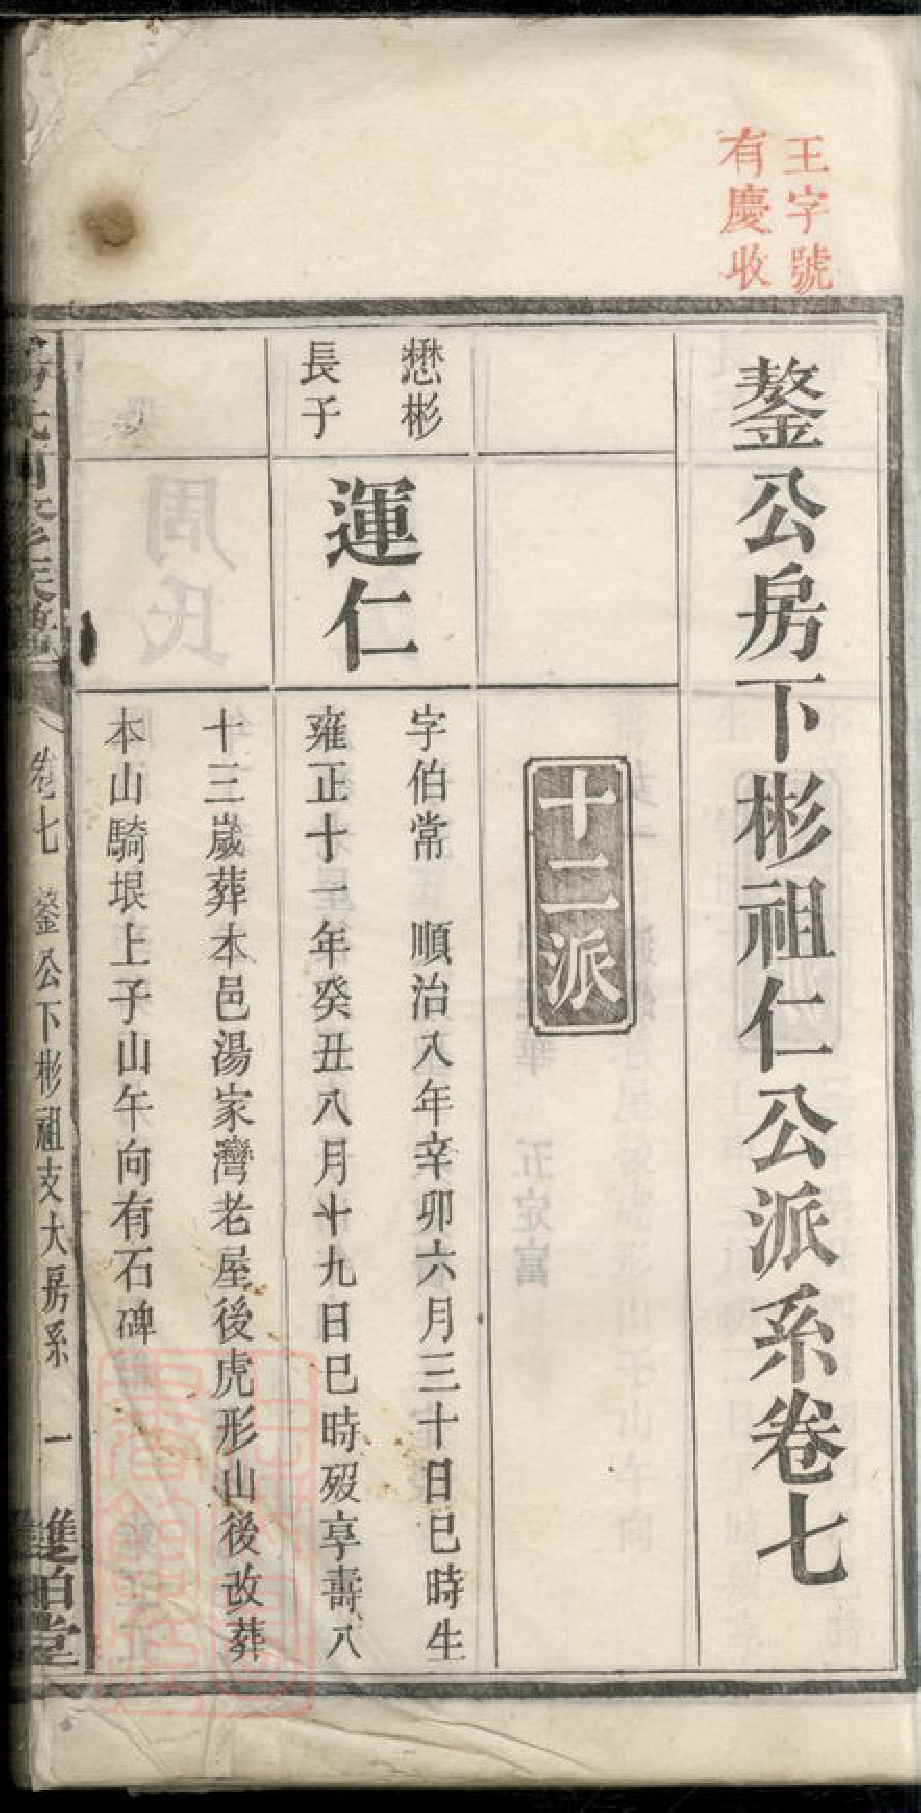 王字號
有慶收
鏊公房下彬祖仁公派系卷七
十二派
懋彬
長子
運仁
字伯常 順治八年辛卯六月三十日巳時生
雍正十一年癸丑八月十九日巳時歿享壽八
十三嵗葬本邑湯家灣老屋後虎形山後改葬
本山騎垠上子山午向有石碑
卷七 鏊公下彬祖支大房系 一 雙柏堂